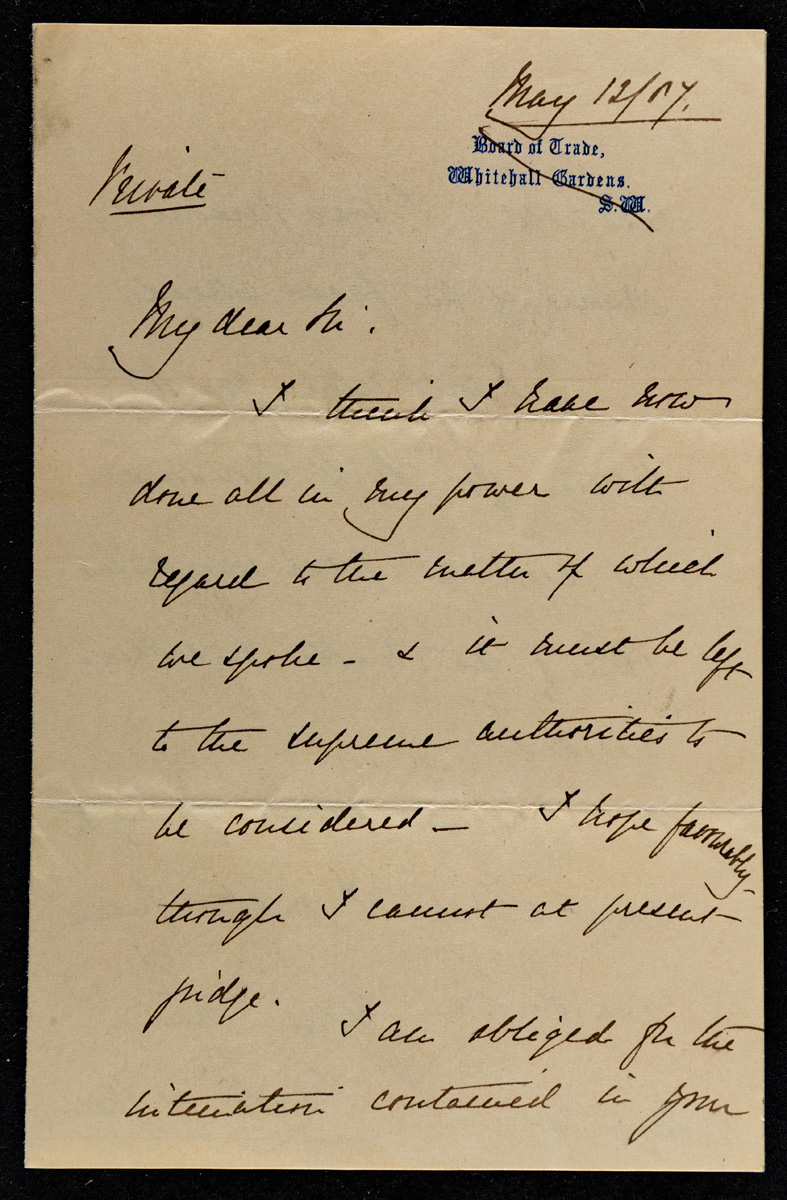 May 12/87.
Board of Trade,
Whitehall Gardens.
S.W.
Private
My dear Sir.
I think I have now
done all in my power with
regard to the matter of which
we spoke - & it must be left
to the supreme authorities to
be considered - I hope favourably -
though I cannot at present
judge.
I am obliged for the
intimation contained in your